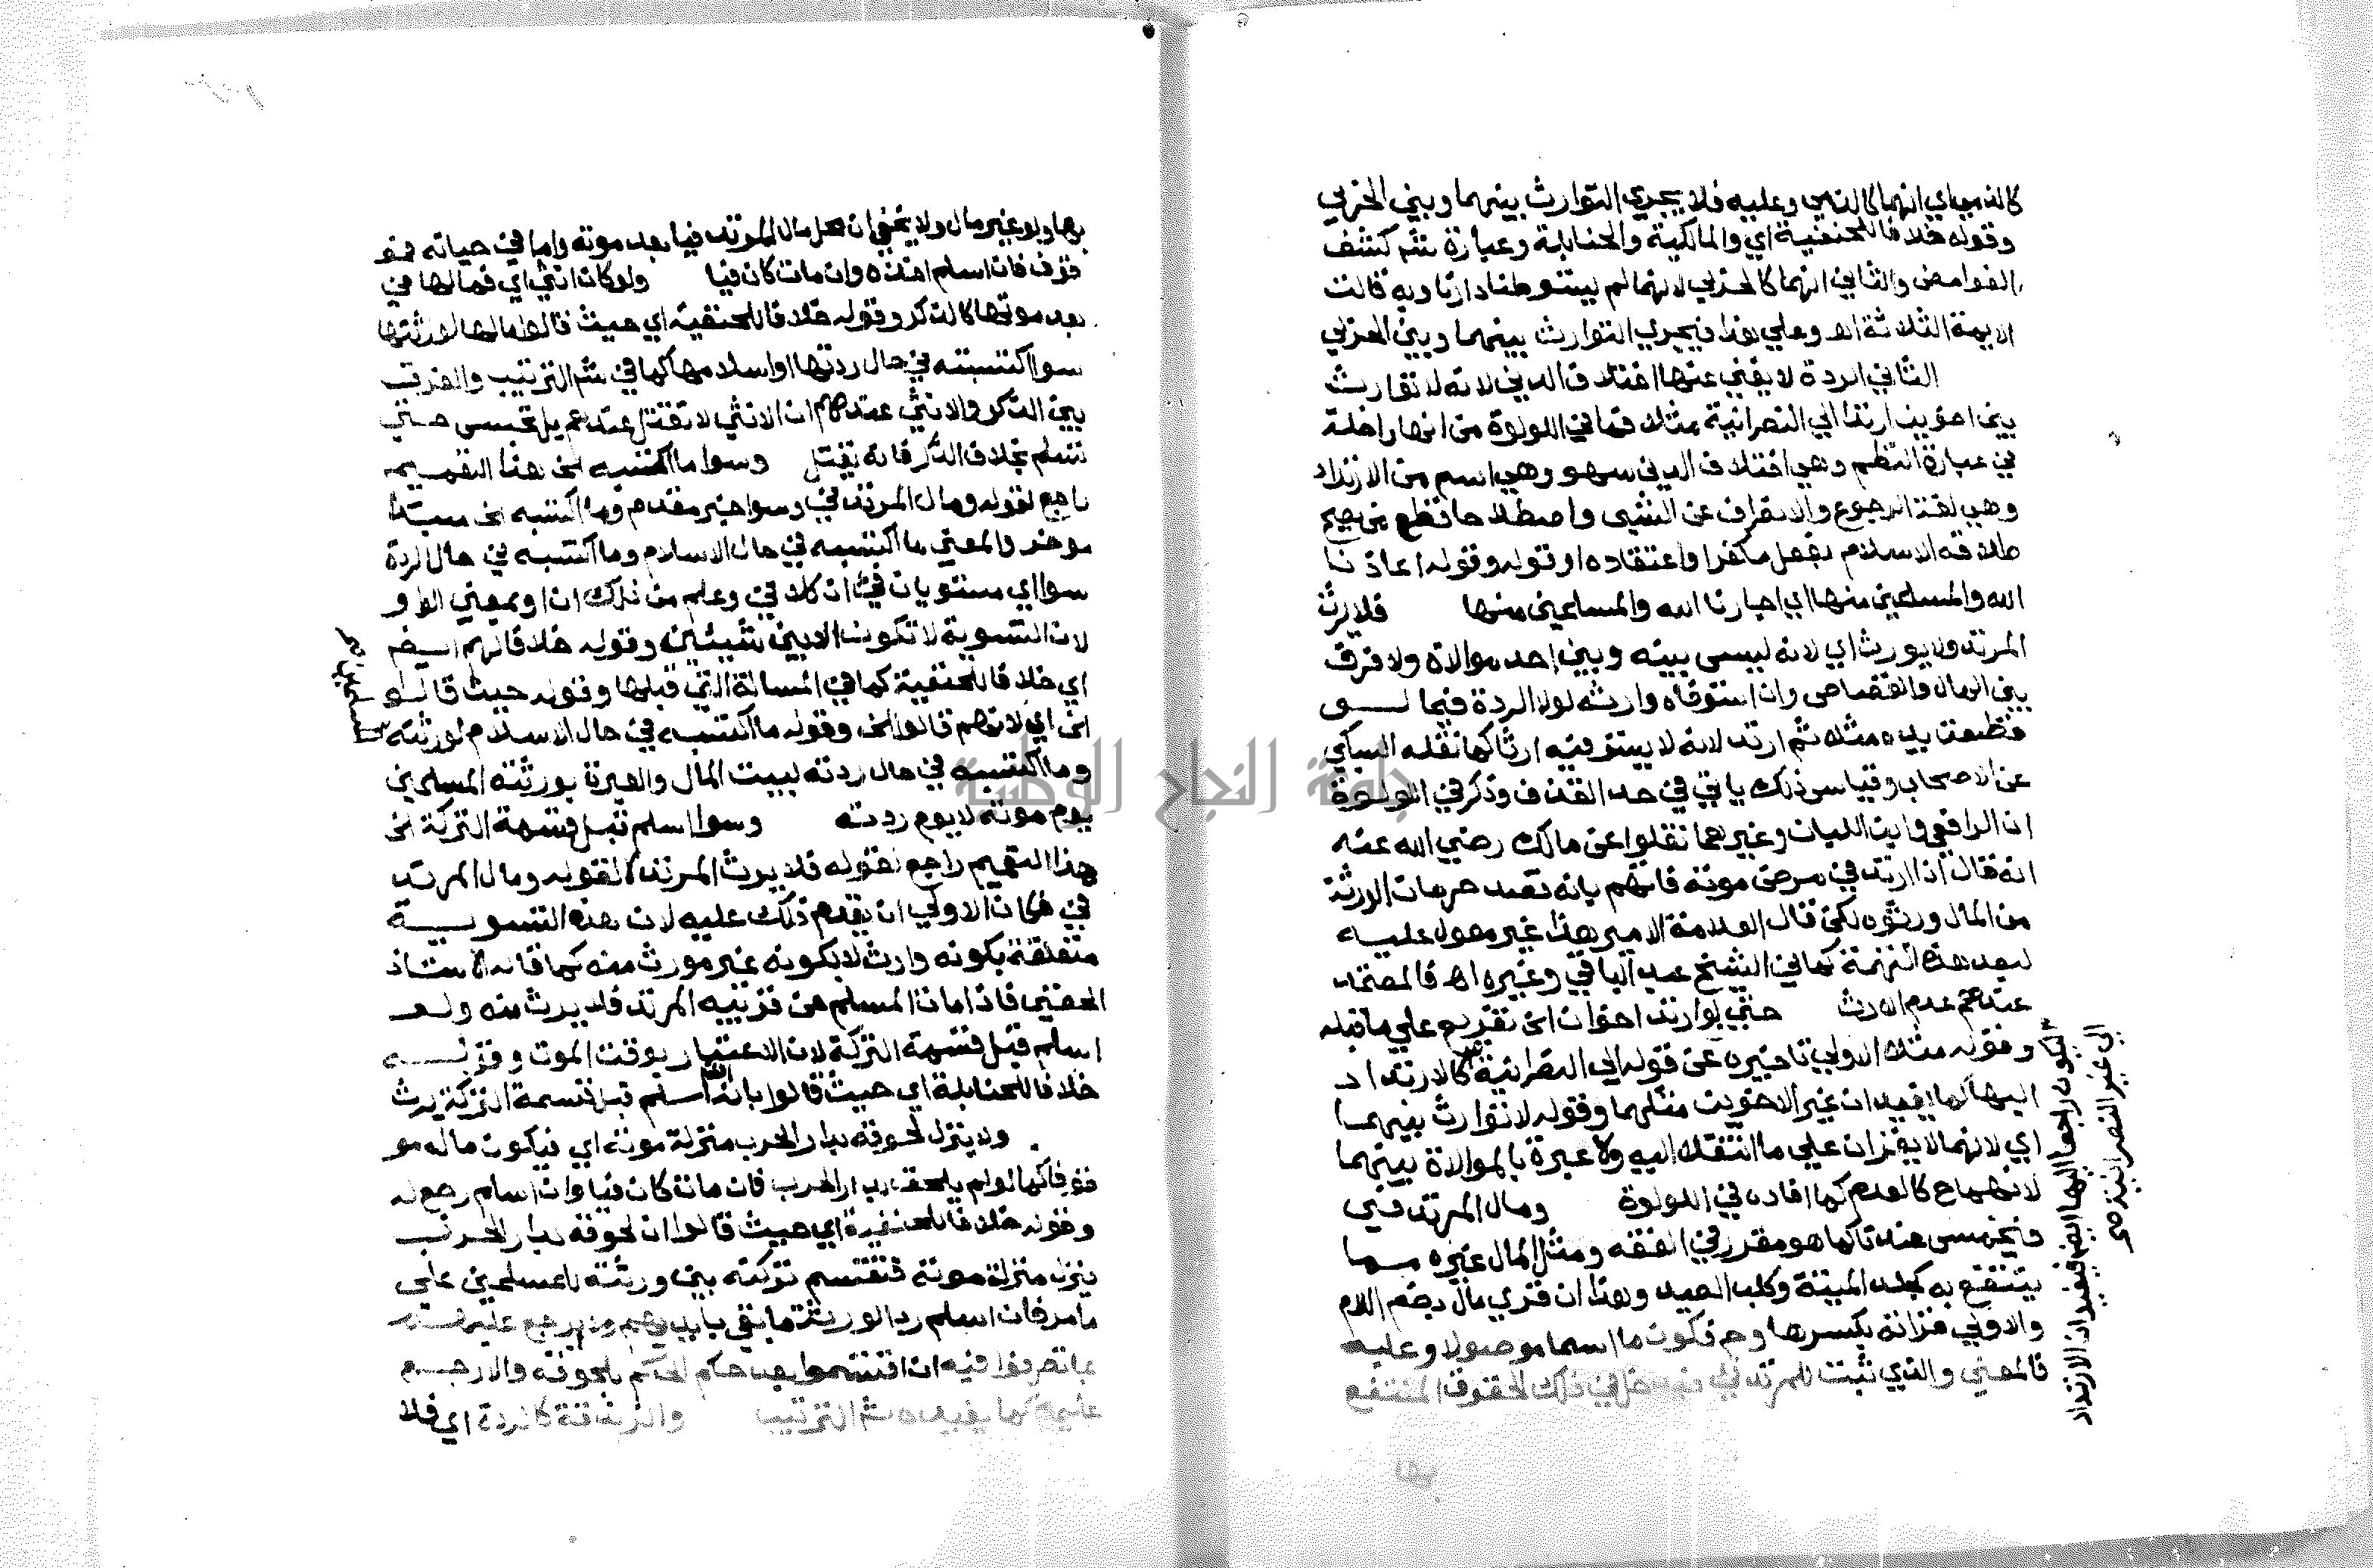 كالذمي اي انهما كالذمي وعليه فلا يجري التوارث بينهما وبين الحربي
وقوله خلافا للحنفية اي والمالكية والحنابلة وعبارة شم كشف
الغوامض والثاني انهما كالحربي لانهما لم يستوطنا دارنا وبه قالت
الايمة الثلاثة اهـ وعلي هذا فيجري التوارث بينهما وبين الحربي
الثاني الردة لا يغني عنها اختلاف الدين لانه لا توارث
بين اخوين ارتدا الي النصرانية مثلا فما في اللولوة من انها داخلة
في عبارة النظم وهي اختلاف الدين سهو وهي اسم من الارتداد
وهي لغة الرجوع والانصراف عن الشي واصطلاحا قطع من يصح
طلاقه الاسلام بفعل مكفر او اعتقاده او قوله وقوله اعاذنا
الله والمسلمين منها اي اجارنا الله والمسلمين منها فلا يرث
المرتد ولا يورث اي لانه ليس بينه وبين احد موالاة ولا فرق
بين المال والقصاص وان استوفاه وارثه لولا الردة فيما لو
قطعت يده مثلا ثم ارتد لانه لا يستوفيه ارثا كما نقله السبكي
عن الاصحاب وقياس ذلك ياتي في حد القذف وذكر في اللولوة
ان الرافعي وابن اللبان وغيرهما نقلوا عن مالك رضي الله عنه
انه قال اذا ارتد في مرض موته فاتهم بانه قصد حرمان الورثة
من المال ورثوه لكن قال العلامة الامير هذا غير معول عليه
لبعد هذه التهمة كما في الشيخ عبد الباقي وغيره اهـ فالمعتمد
عندهم عدم الارث حتي لو ارتد اخوان الخ تفريع علي ما قبله
وقوله مثلا الاولي تاخيره عن قوله الي النصرانية كالارتداد
اليها كما يفيد ان غير الاخوين مثلهما وقوله لا توارث بينهما
اي لانهما لا يقران علي ما انتقلا اليه ولا عبرة بالموالاة بينهما
لانها ح كالعدم كما افاده في اللولوة ومال المرتد في
فيخمس عندنا كما هو مقرر في الفقه ومثل المال غيره مما
ينتفع به كجلد الميتة وكلب الصيد وهذا ان قري مال بضم اللام
والاولي قراته بكسرها وح فتكون ما اسما موصولا وعليه
فالمعني والذي ثبت للمرتد في فيدخل في ذلك الحقوق المنتفع
ليكون راجعا اليها ايضا فيفيد ان الارتداد
الي غير النصرانية صح
بها
بها ولو غير مال ولا يخفي ان محل مال المرتد فيا بعد موته واما في حياته فمو
قوف فان اسلم اخذه وان مات كان فيا ولو كان انثي اي فمالها في
بعد موتها كالذكر وقوله خلافا للحنفية اي حيث قالوا مالها لورثتها
سوا اكتسبته في حال ردتها او اسلامها كما في شم الترتيب والفرق
بين الذكر والانثي عندهم ان الانثي لا تقتل عندهم بل تحبس حتي
تسلم بخلاف الذكر فانه يقتل وسوا ما اكتسبه الخ هذا التعميم
راجع لقوله ومال المرتد في وسوا خبر مقدم وما اكتسبه الخ مبتدا
موخر والمعني ما اكتسبه في حال الاسلام وما اكتسبه في حال الردة
سوا اي مستويان في ان كلا في وعلم من ذلك ان او بمعني الواو
لان التسوية لا تكون الا بين شيئين وقوله خلافا لهم ايضا
اي خلافا للحنفية كما في المسالة التي قبلها وقوله حيث قالوا
الخ اي لانهم قالوا الخ وقوله ما اكتسبه في حال الاسلام لورثته
المسلمين صح
وما اكتسبه في حال ردته لبيت المال والعبرة بورثته المسلمين
يوم موته لا يوم ردته وسوا اسلم قبل قسمة التركة الخ
هذا التعميم راجع لقوله فلا يرث المرتد لا لقوله ومال المرتد
في فكان الاولي ان يقدم ذلك عليه لان هذه التسوية
متعلقة بكونه وارث لا بكونه غير مورث منه كما قاله الاستاذ
الحفني فاذا مات المسلم عن قريبه المرتد فلا يرث منه ولو
اسلم قبل قسمة التركة لان الاعتبار بوقت الموت وقوله
خلافا للحنابلة اي حيث قالوا بانه اذا اسلم قبل قسمة التركة يرث
ولا ينزل لحوقه بدار الحرب منزلة موته اي فيكون ماله مو
قوفا كما لو لم يلحق بدار الحرب فان مات كان فيا وان اسلم رجع له
وقوله خلافا للحنفية اي حيث قالوا ان لحوقه بدار الحرب
ينزل منزلة موته فتقتسم تركته بين ورثته المسلمين علي
ما مر فان اسلم رد الورثة ما بقي بايديهم
ان اقتسموا بعد حكم الحاكم بلحوقه والا رجع
شم الترتيب والزندقة كالردة اي فلا
جامعة النجاح الوطنية